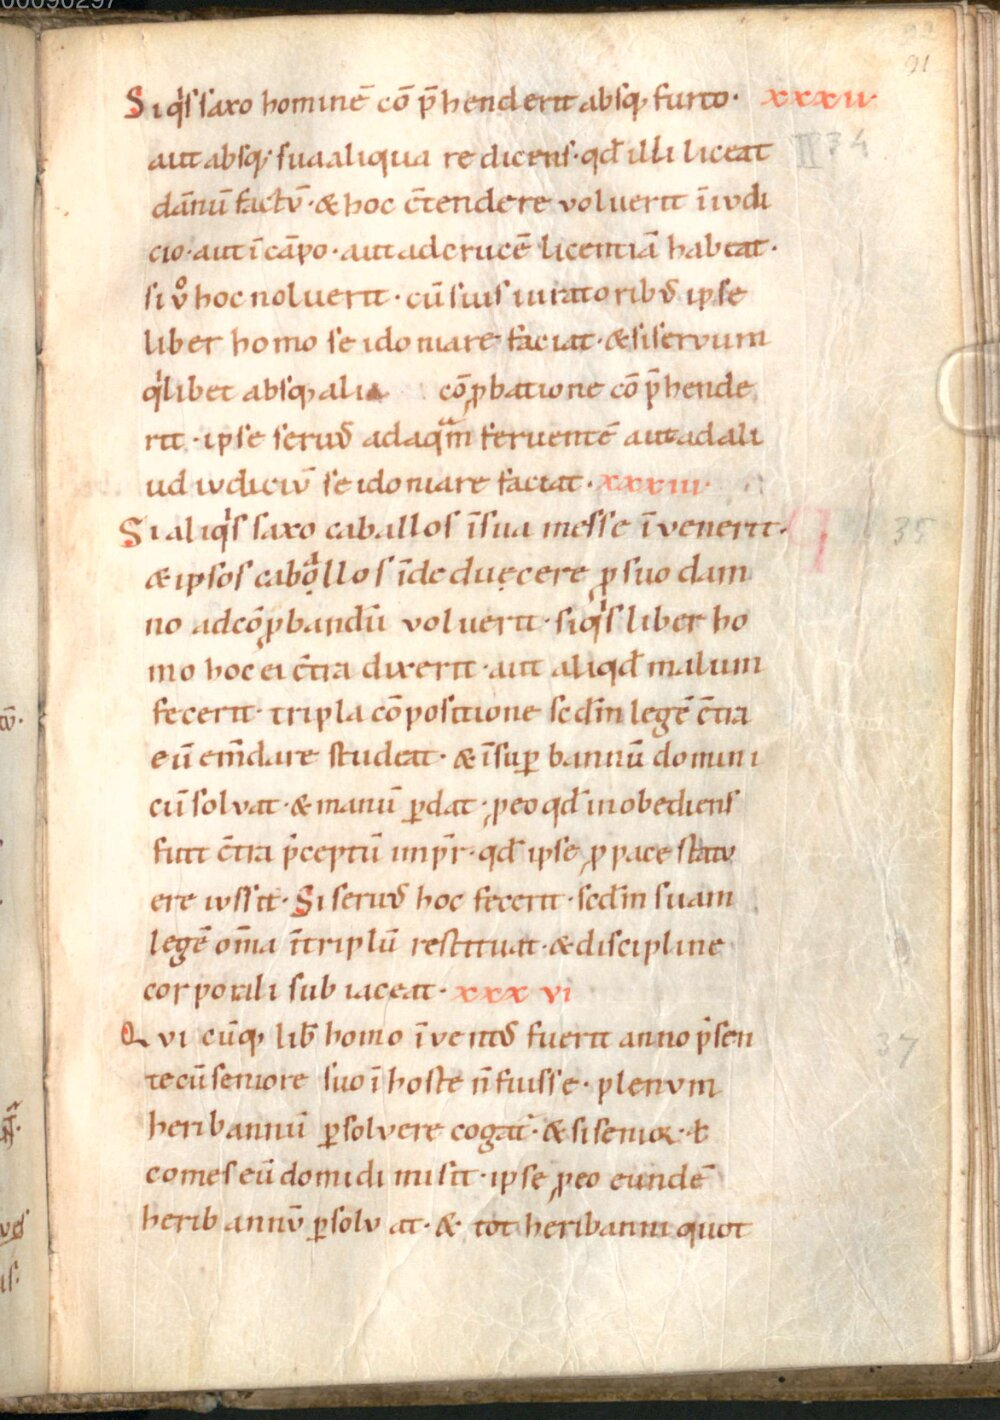 91
Si q̇s saxo hominē cō p̄henderit absq; furto· xxxii·
aut absq; sua aliqua re dicens· qđ illi liceat II 34
dānū factū· & hoc c̄tendere voluerit ī iudi
cio· aut ī cāpo· aut ad crucē licentiā habeat·
si v̊ hoc noluerit· cū suis iuratoribus ipse
liber homo se idoniare faciat· & si servum
q̇libet absq; ali cō ꝓbatione cō p̄hende
rit· ipse servus ad aquam ferventē aut ad ali
ud iudiciū se idoniare faciat· xxxiii·
Si aliq̇s saxo caballos ī sua messe īvenerit· 35
& ipsos caballos īde ducere ꝓ suo dam
no ad cōꝓbandū voluerit· siq̇s liber ho
mo hoc ei c̄tra dixerit· aut aliqđ malum
fecerit· tripla cōpositione scđm legē c̄tra
eū em̄dare studeat· & īsuꝑ bannū domini
cū solvat· & manū ꝑdat· ꝓ eo qđ inobediens
fuit c̄tra p̄ceptū imp̄r· qđ ipse ꝓ pace statu
ere iussit· Si servus hoc fecerit· scđm suam
legē om̄a ī triplū restituat· & discipline
corporali subiaceat· xxx vi
Qui cūq; lib̄ homo īventus fuerit anno p̄sen 37
te cū seniore suo ī hoste n̄ fuisse· plenum
heribannū ꝑsolvere cogat̄· & si senior· ł
comes eū domi dimisit· ipse ꝓ eo eundē
heribannū ꝑsolvat· & tot heribanni quot